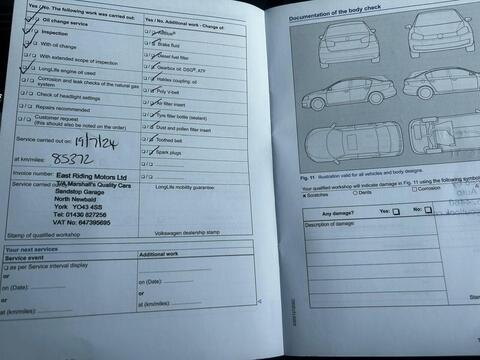 Yes / No. The following work was carried out:
Oil change service
Inspection
With oil change
With extended scope of inspection
LongLife engine oil used
Corrosion and leak checks of the natural gas system
Check of headlight settings
Repairs recommended
Customer request
(this should also be noted on the order)
Service carried out on: 19/7/24
at km/miles: 85372
Invoice number:
East Riding Motors Ltd
Service carried out
T/A Marshall's Quality Cars
Sandstop Garage
North Newbald
York YO43 4SS
Tel: 01430 827256
VAT No: 647395695
Stamp of qualified workshop
Yes / No. Additional work - Change of:
Brake fluid
Diesel fuel filter
Gearbox oil: DSG®, ATF
Haldex coupling: oil
Poly V-belt
Air filter insert
Tyre filler bottle (sealant)
Dust and pollen filter insert
Toothed belt
Spark plugs
LongLife mobility guarantee:
Volkswagen dealership stamp
Your next services
Service event
Additional work
as per Service interval display
or
on (Date):
or
at (km/miles):
on (Date):
or
at (km/miles):
Documentation of the body check
Fig. 11 Illustration valid for all vehicles and body designs.
Your qualified workshop will indicate damage in Fig. 11 using the following symbols
x Scratches
○ Dents
□ Corrosion
Any damage?
Yes:
No:
Description of damage: